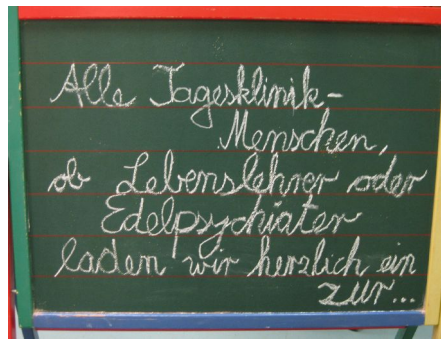 Alle Tagesklinik-
Menschen,
ob Lebenslehrer oder
Edelpsychiater
laden wir herzlich ein
zur...